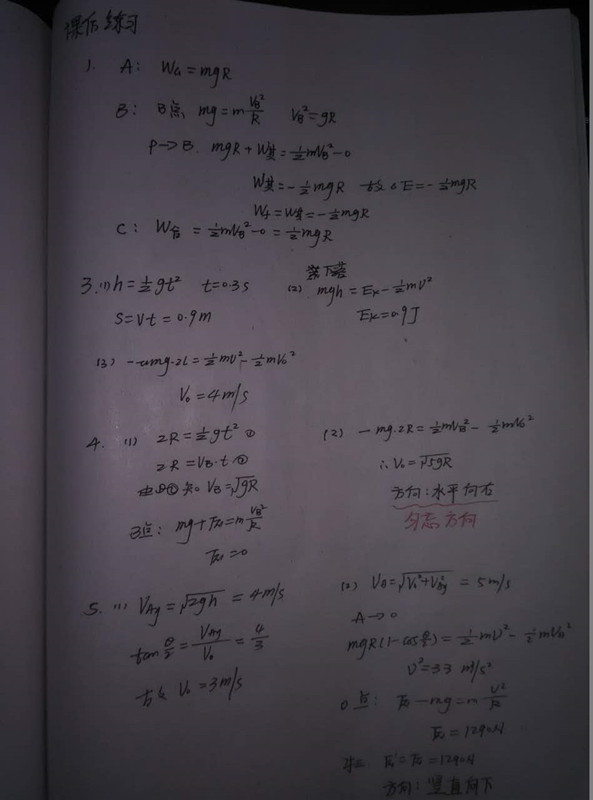 课后练习
1. A: WG = mgR
B: B点 mg = m VB²/R VB² = gR
P→B. mgR + W其 = ½mVB² - 0
W其 = -½mgR 故△E = -½mgR
Wf = W其 = -½mgR
C: W合 = ½mVB² - 0 = ½mgR
3. (1) h = ½gt² t = 0.3s
S = Vt = 0.9m
(2) mgh = Ek - ½mV²
Ek = 0.9J
(3) -umg·2L = ½mV² - ½mV0²
V0 = 4m/s
4. (1) 2R = ½gt² ①
2R = VB·t ②
由①②知 VB = √gR
B点: mg + FN = m VB²/R
FN = 0
(2) -mg·2R = ½mVB² - ½mV0²
∴ V0 = √5gR
方向:水平向右
勿忘方向
5. (1) VAy = √2gh = 4m/s
tan θ/2 = VAy/V0 = 4/3
故 V0 = 3m/s
(2) VA = √V0² + VAy² = 5m/s
A→O
mgR(1-cos θ/2) = ½mV² - ½mVA²
V² = 33 m/s²
O点: FN - mg = m V²/R
FN = 1290N
牛三 FN' = FN = 1290N
方向:竖直向下